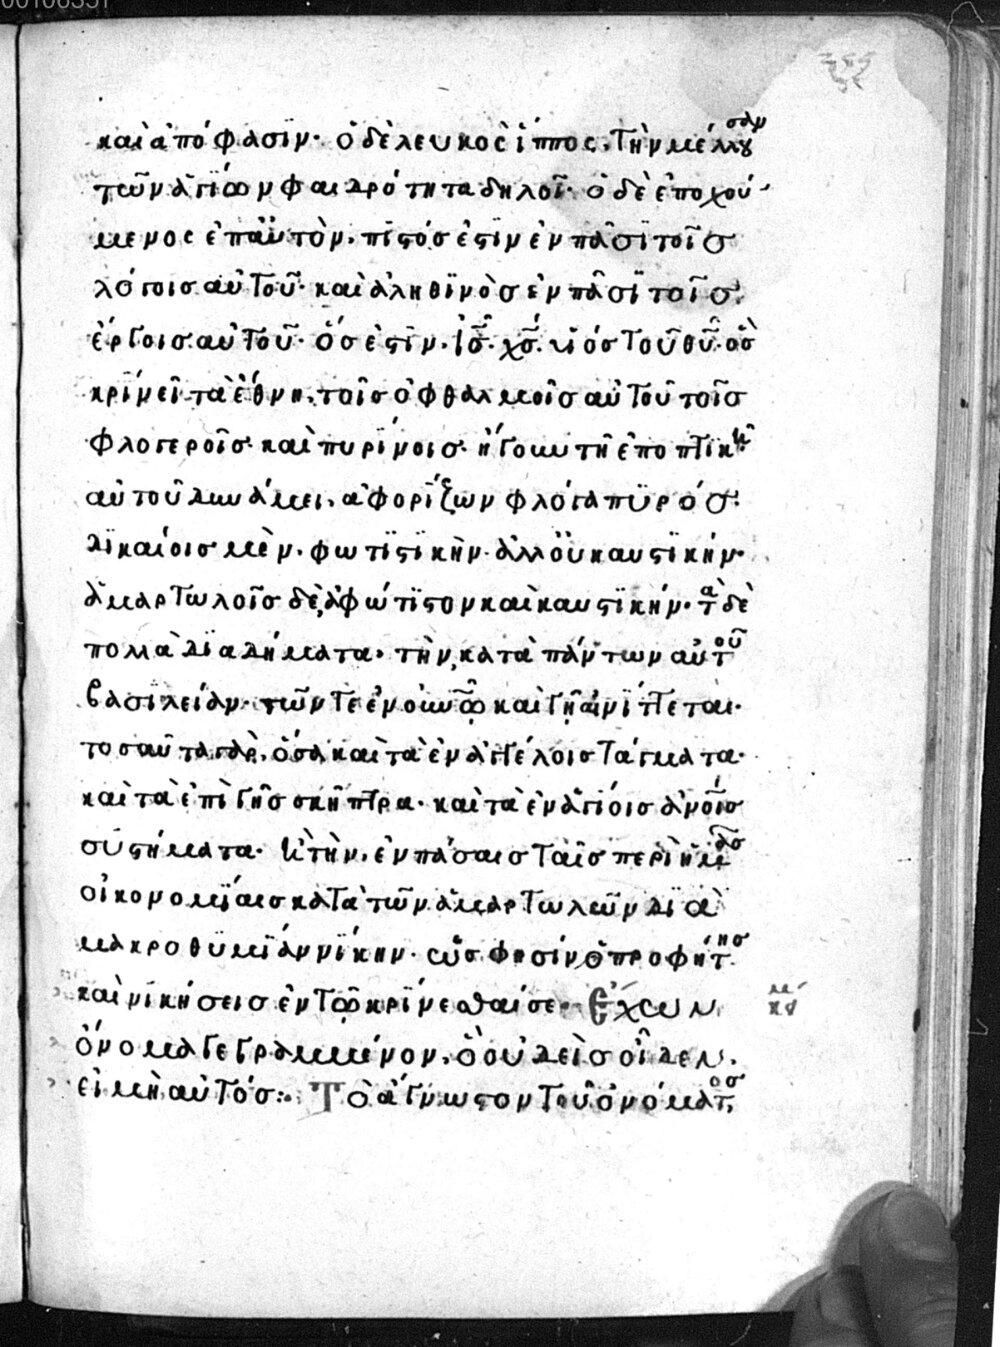 00106351
καὶ ἀπόφασϊν· ὁ δὲ λευκὸς ἵππος, τὴν μέλλουσαν
τῶν ἁγίων φαιδρότητα δηλοῖ· ὁ δὲ ἐποχού
μενος ἐπ' αὐτὸν, πϊστόσ ἐστϊν ἐν πᾶσϊ τοῖσ
λόγοισ αὐτοῦ· καὶ ἀληθϊνὸσ ἐν πᾶσϊ τοῖσ
ἔργοισ αὐτοῦ· ὅσ ἐστϊν, ἰσ̅· χσ̅· υἱόσ τοῦ θυ̅· ὃσ
κρίνει τὰ ἔθνη, τοῖσ ὀφθαλμοῖσ αὐτοῦ τοῖσ
φλογεροῖσ· καὶ πυρίνοισ· ἤγουν τῆ ἐποπτικῆ
αὐτοῦ δυνάμει, ἀφορίζων φλόγα πϋρόσ·
δϊκαίοισ μὲν, φωτϊστϊκὴν· ἀλλ' οὐ καυστϊκήν·
ἁμαρτωλοῖσ δὲ, ἀφώτϊστον καὶ καυστϊκήν· τὰ δὲ
πολλὰ δϊαδήματα, τὴν κατὰ πάντων αὐτοῦ
βασϊλείαν· τῶν τε ἐν οὐνῶ̅ καὶ γῆ αἰνίττεται·
τοσαῦτα γὰρ, ὅσα καὶ τὰ ἐν ἀγγέλοισ τάγματα·
καὶ τὰ ἐπὶ γῆσ σκῆπτρα· καὶ τὰ ἐν ἁγίοισ ἀνοῖσ
συστήματα· κ τὴν, ἐν πάσαισ ταῖσ περὶ ἡμᾶσ
οἰκονομίαισ κατὰ τῶν ἁμαρτωλῶν δϊὰ
μακροθυμϊαν νίκην· ὥσ φησὶν ὁ προφήτησ
καὶ νϊκήσεισ ἐν τῶ κρίνεσθαί σε· Ἔχων
ὄνομα γεγραμμένον, ὃ οὐδεὶσ οἶδεν,
εἰ μὴ αὐτόσ:· Τὸ ἄγνωστον τοῦ ὀνόματοσ